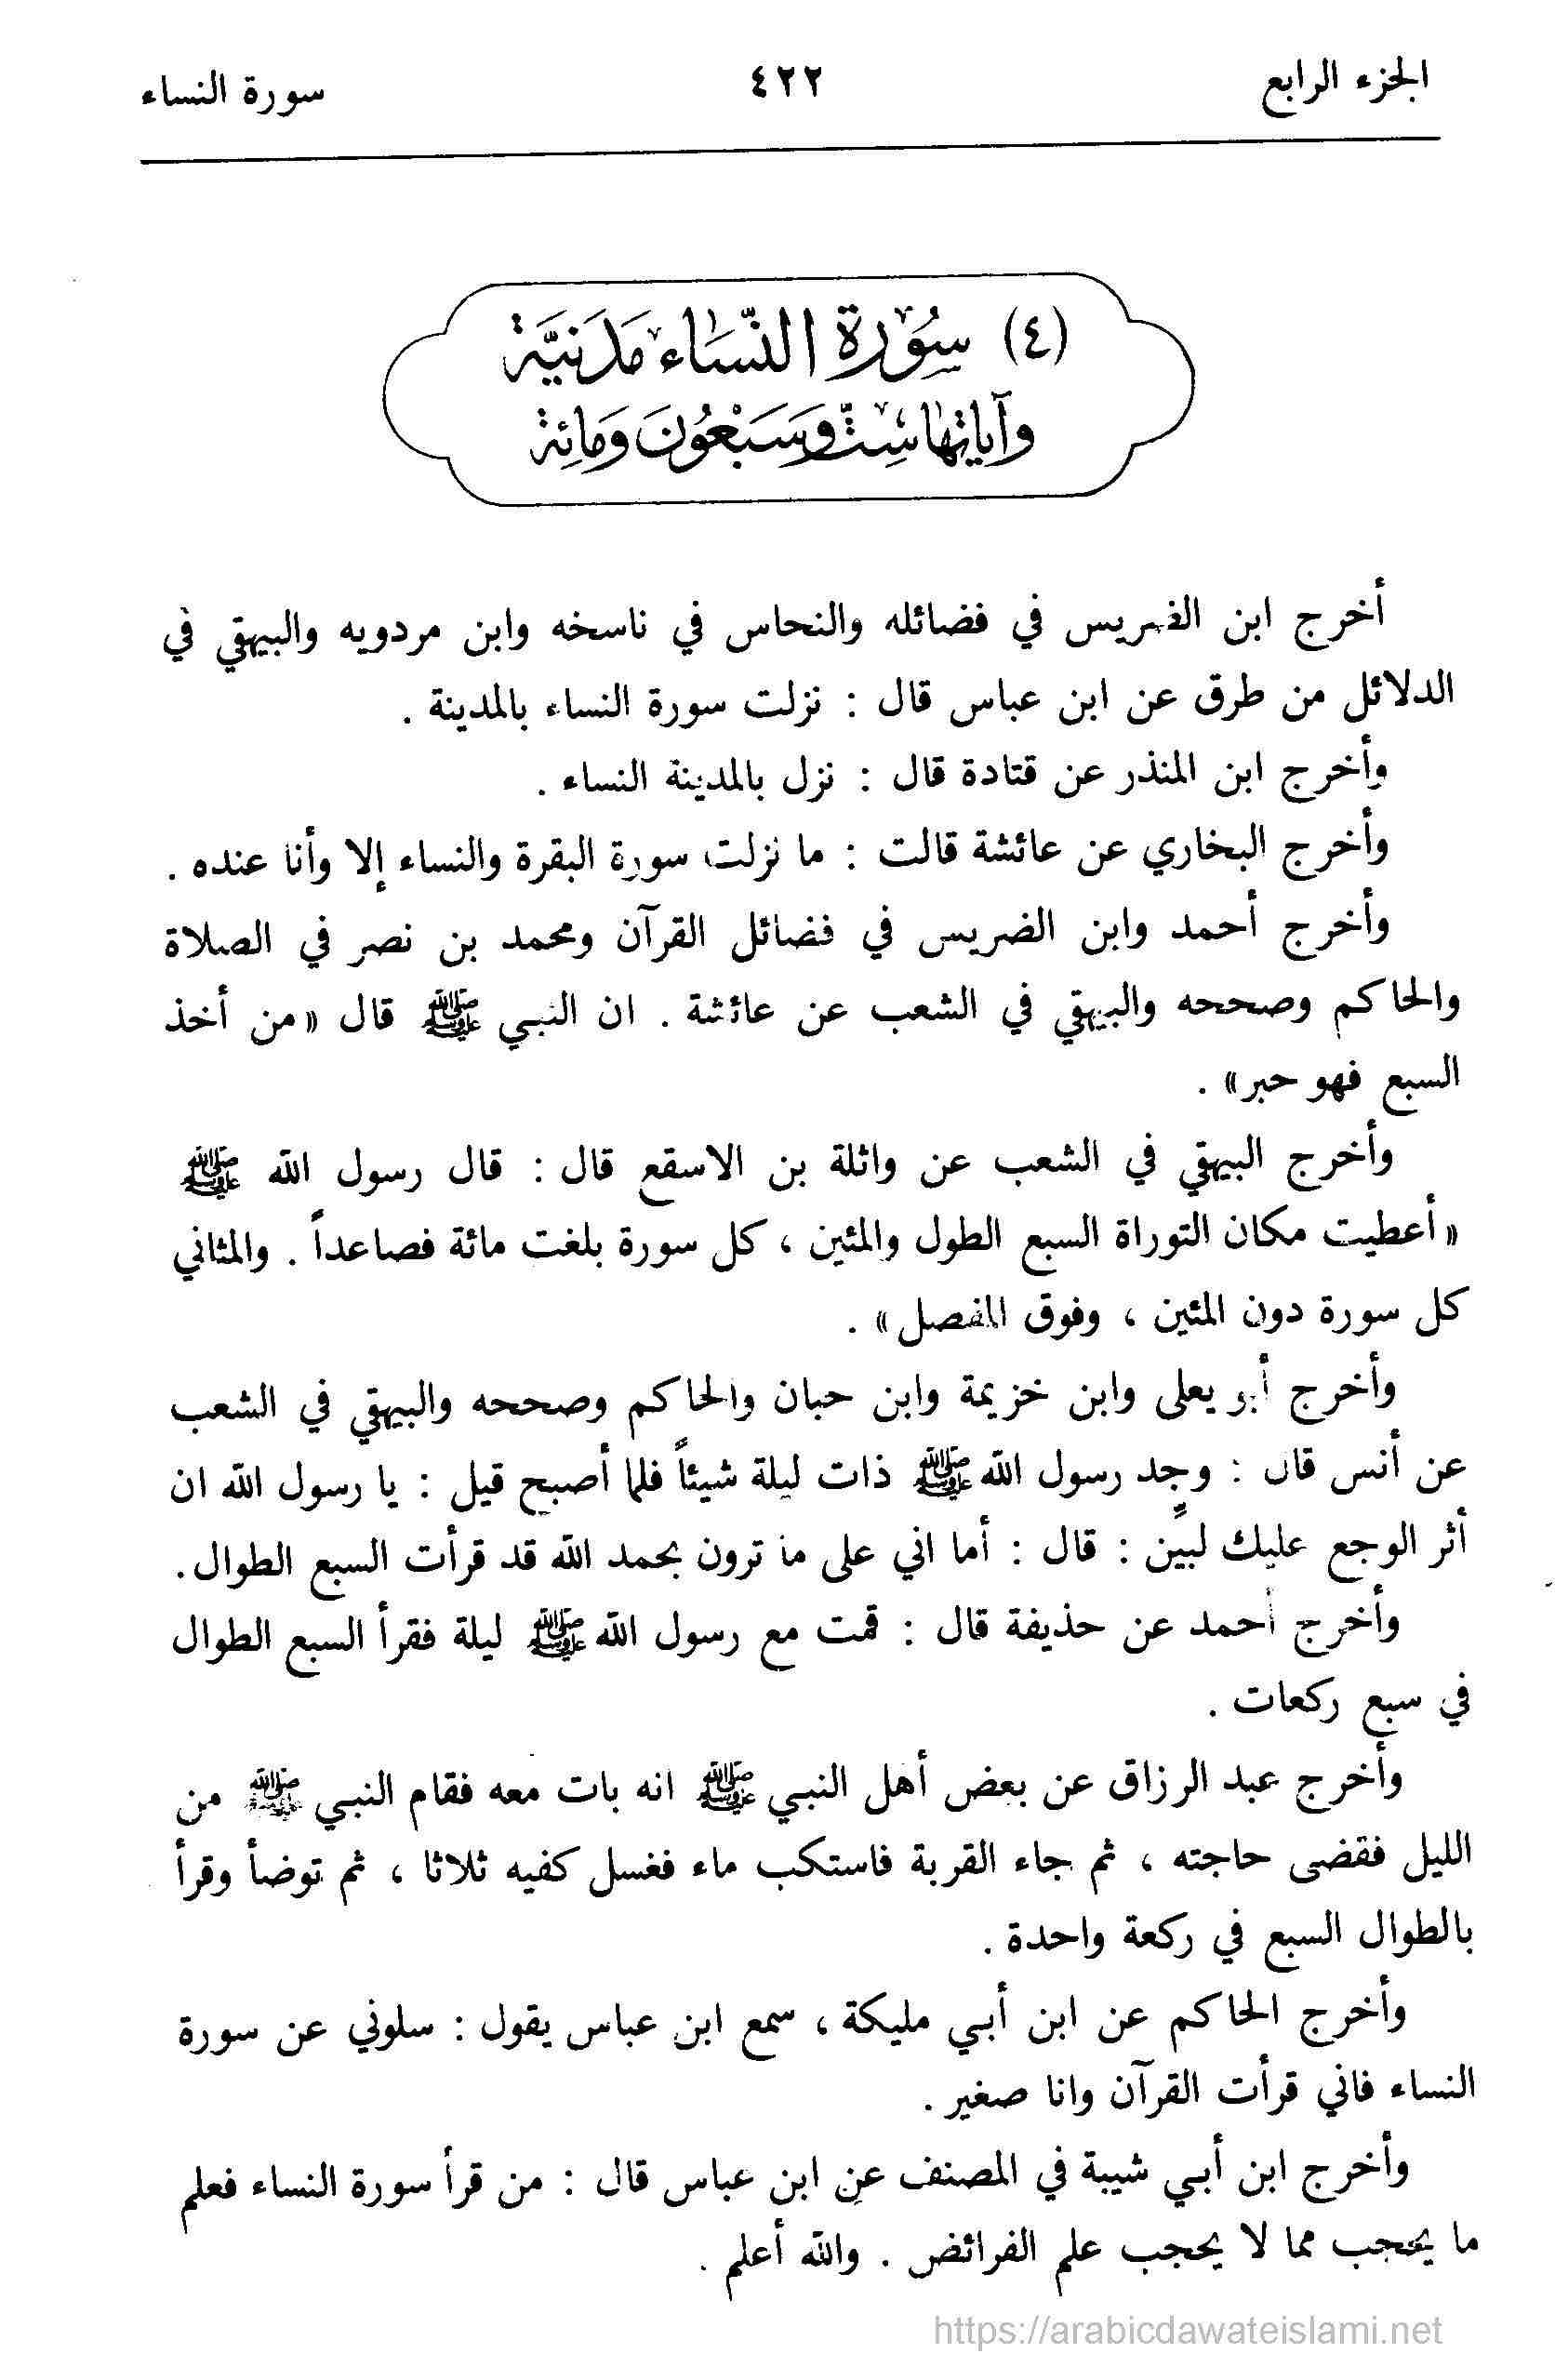 الجزء الرابع ٤٢٢ سورة النساء
(٤) سُورَة النِّسَاء مَدَنيَّة
وآياتها ستّ وَسَبْعُونَ وَمَائِة
أخرج ابن الضريس في فضائله والنحاس في ناسخه وابن مردويه والبيهقي في
الدلائل من طرق عن ابن عباس قال : نزلت سورة النساء بالمدينة .
وأخرج ابن المنذر عن قتادة قال : نزل بالمدينة النساء .
وأخرج البخاري عن عائشة قالت : ما نزلت سورة البقرة والنساء إلا وأنا عنده .
وأخرج أحمد وابن الضريس في فضائل القرآن ومحمد بن نصر في الصلاة
والحاكم وصححه والبيهقي في الشعب عن عائشة . ان النبي ﷺ قال «من أخذ
السبع فهو حبر» .
وأخرج البيهقي في الشعب عن واثلة بن الاسقع قال : قال رسول الله ﷺ
«أعطيت مكان التوراة السبع الطول والمئين ، كل سورة بلغت مائة فصاعداً . والمثاني
كل سورة دون المئين ، وفوق المفصل» .
وأخرج أبو يعلى وابن خزيمة وابن حبان والحاكم وصححه والبيهقي في الشعب
عن أنس قال : وجد رسول الله ﷺ ذات ليلة شيئاً فلما أصبح قيل : يا رسول الله ان
أثر الوجع عليك لبيّن : قال : أما اني على ما ترون بحمد الله قد قرأت السبع الطوال.
وأخرج أحمد عن حذيفة قال : قمت مع رسول الله ﷺ ليلة فقرأ السبع الطوال
في سبع ركعات .
وأخرج عبد الرزاق عن بعض أهل النبي ﷺ انه بات معه فقام النبي ﷺ من
الليل فقضى حاجته ، ثم جاء القربة فاستكب ماء فغسل كفيه ثلاثا ، ثم توضأ وقرأ
بالطوال السبع في ركعة واحدة .
وأخرج الحاكم عن ابن أبي مليكة ، سمع ابن عباس يقول : سلوني عن سورة
النساء فاني قرأت القرآن وانا صغير .
وأخرج ابن أبي شيبة في المصنف عن ابن عباس قال : من قرأ سورة النساء فعلم
ما يحجب مما لا يحجب علم الفرائض . والله أعلم .
https://arabicdawateislami.net